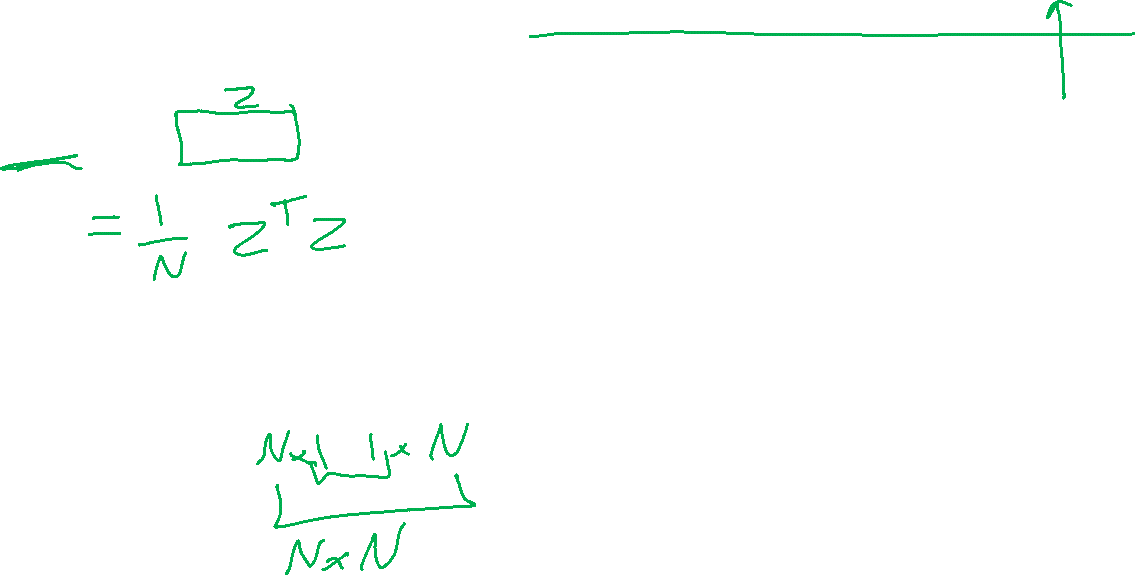 Z
= 1/N Z^T Z
N×1 1×N
N×N